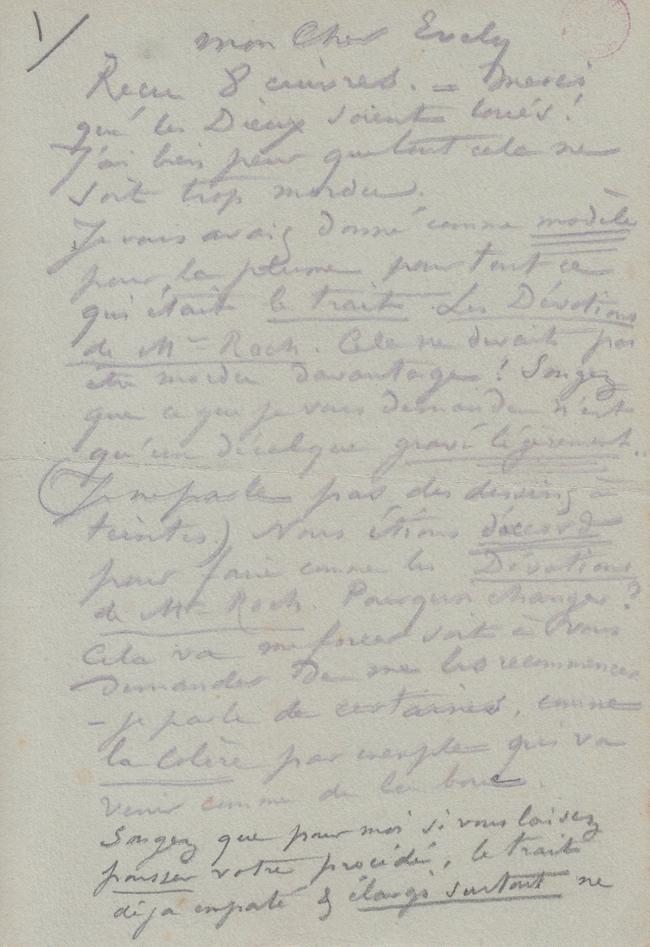 1/
mon Cher Evely
Reçu 8 cuivres. = merci
que les Dieux soient loués!
J'ai bien peur que tout cela ne
soit trop mordu.
Je vous avais donné comme modèle
pour la plume pour tout ce
qui était le trait Les Dévotions
de Mr Roch. Cela ne devait pas
être mordu davantage! Songez
que ce que je vous demandais n'est
qu'un décalque gravé légèrement..
(Je ne parle pas des dessins à
teintes.) Nous étions d'accord
pour faire comme les Dévotions
de Mr Roch. Pourquoi changer?
Cela va me forcer soit à vous
demander de me les recommencer
- je parle de certaines, comme
la Colère par exemple qui va
venir comme de la boue.
Songez que pour moi si vous laissez
pousser votre procédé, le trait
déjà empaté & élargi surtout ne